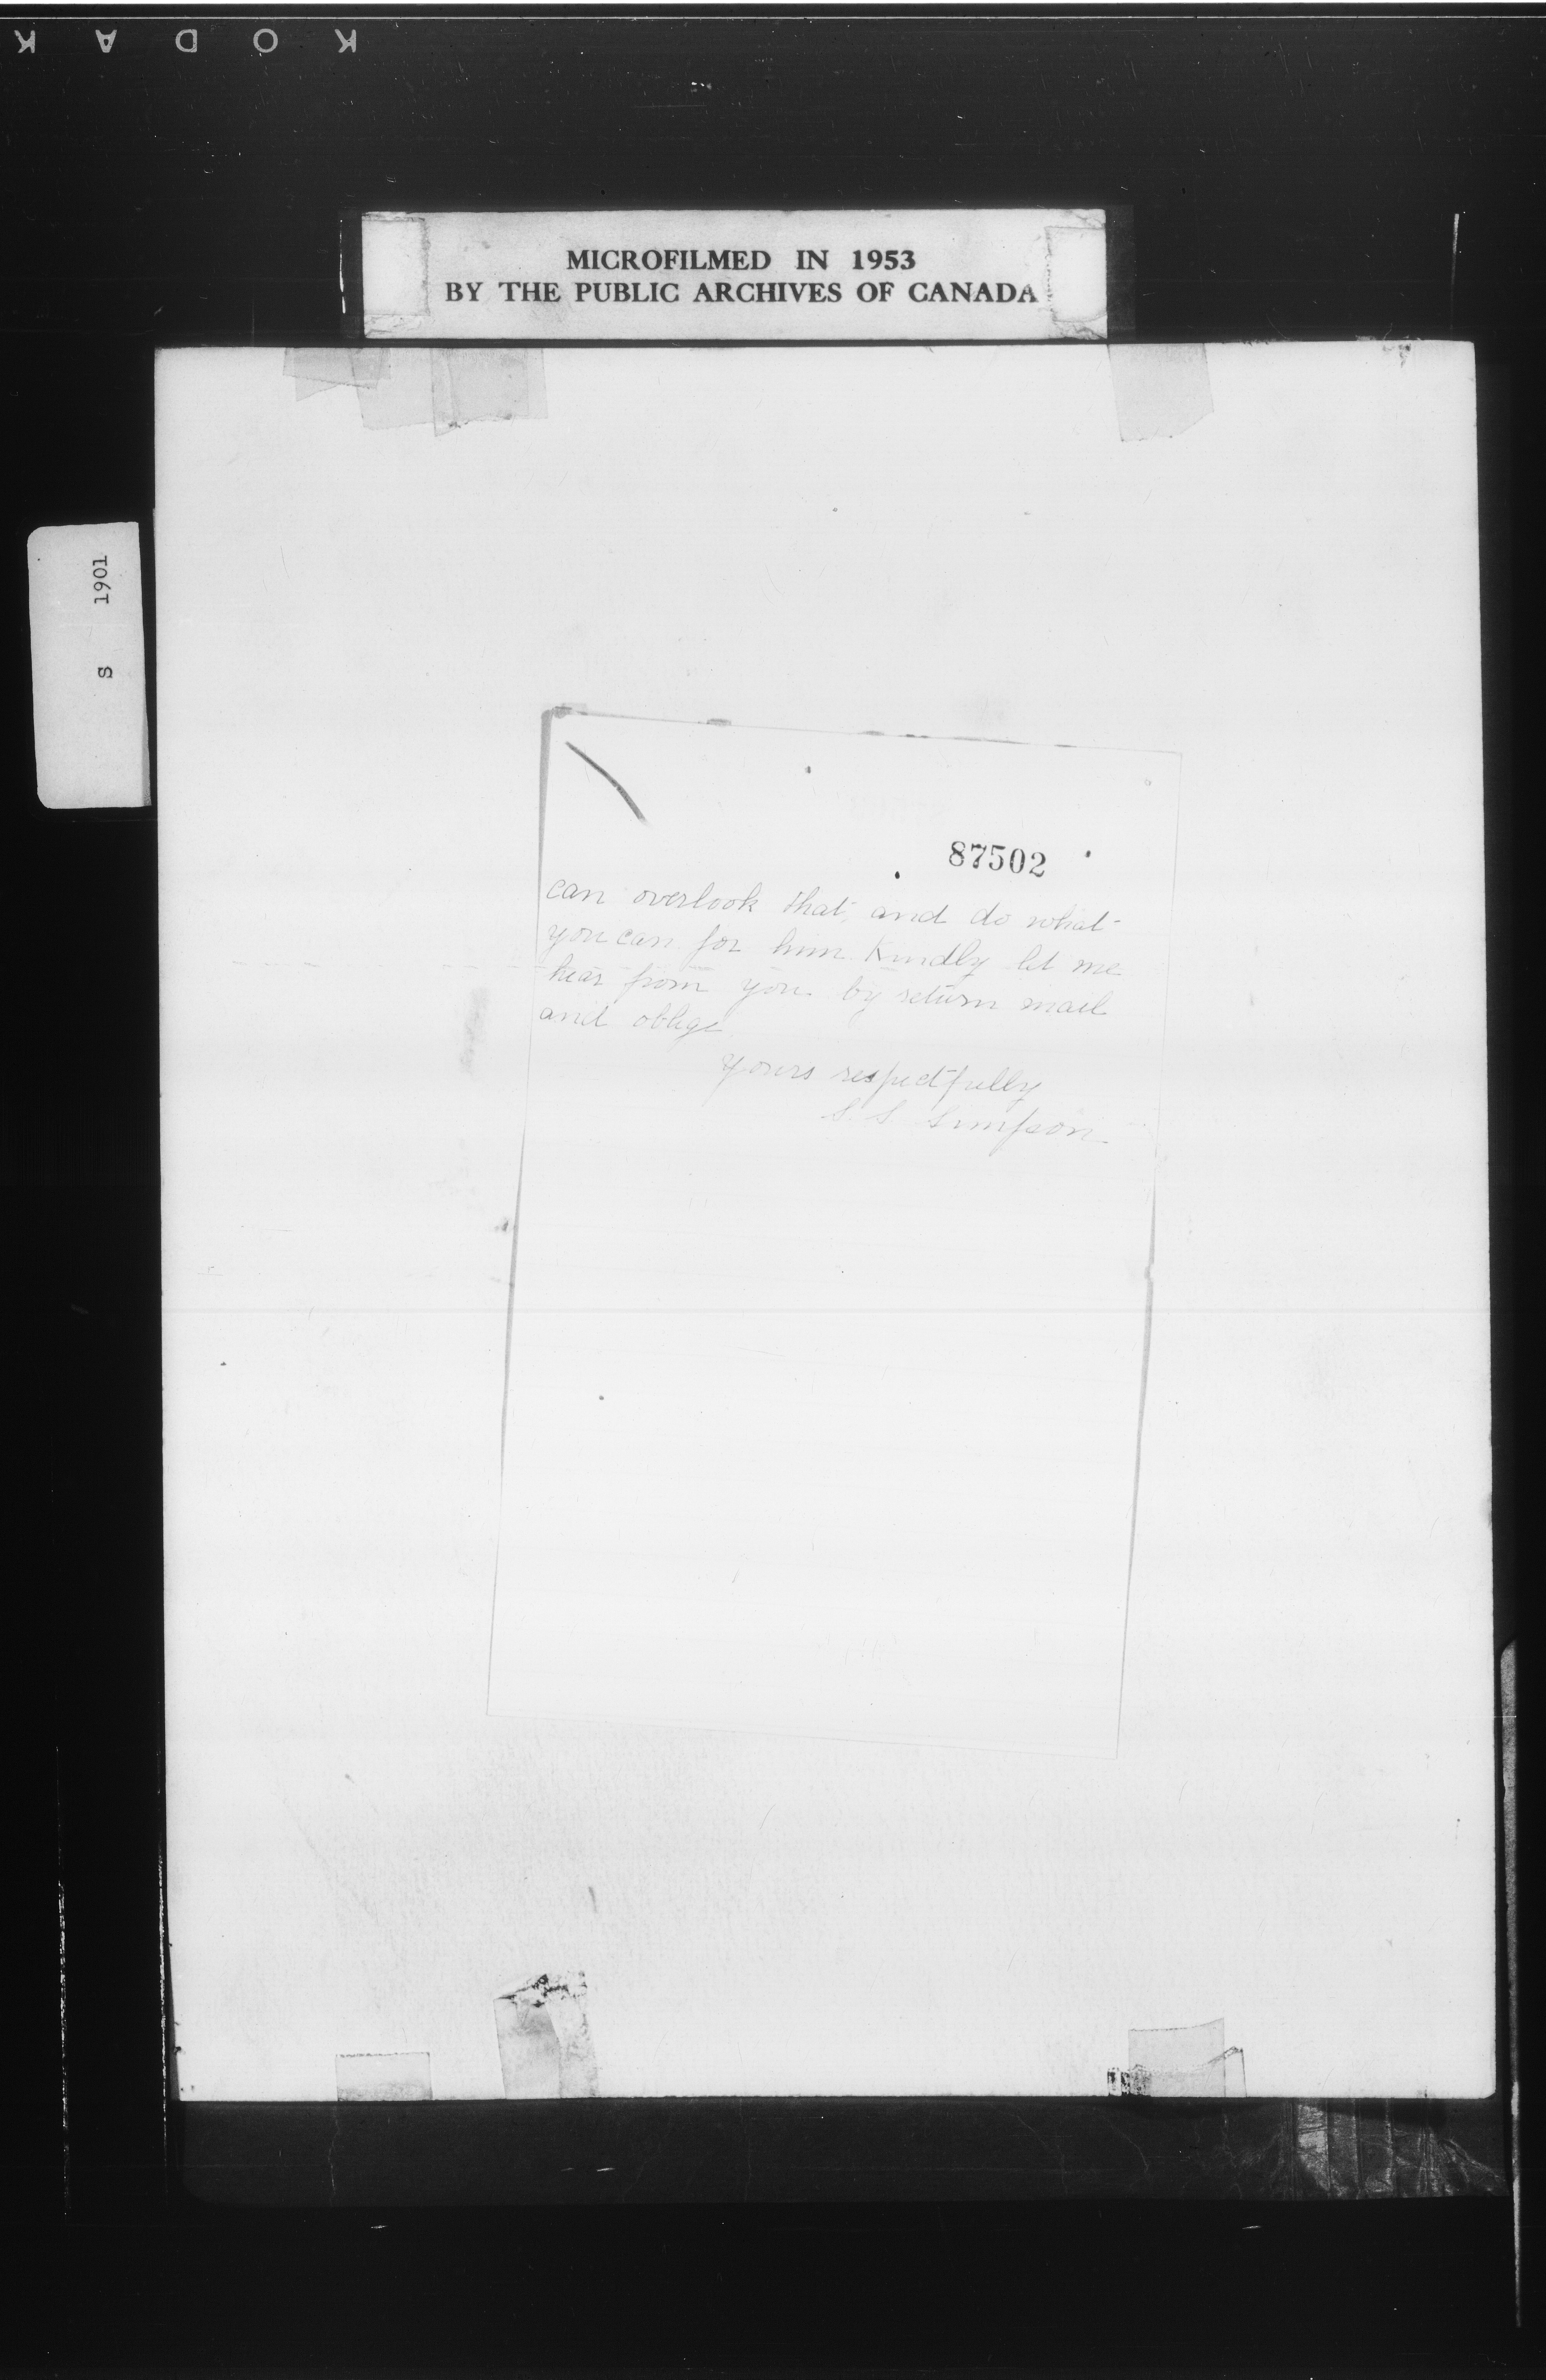 KODAK K
MICROFILMED IN 1953
BY THE PUBLIC ARCHIVES OF CANADA
S 1901
87502
can overlook that and do what
you can for him Kindly let me
hear from you by return mail
and oblige
Yours respectfully
S. S Simpson